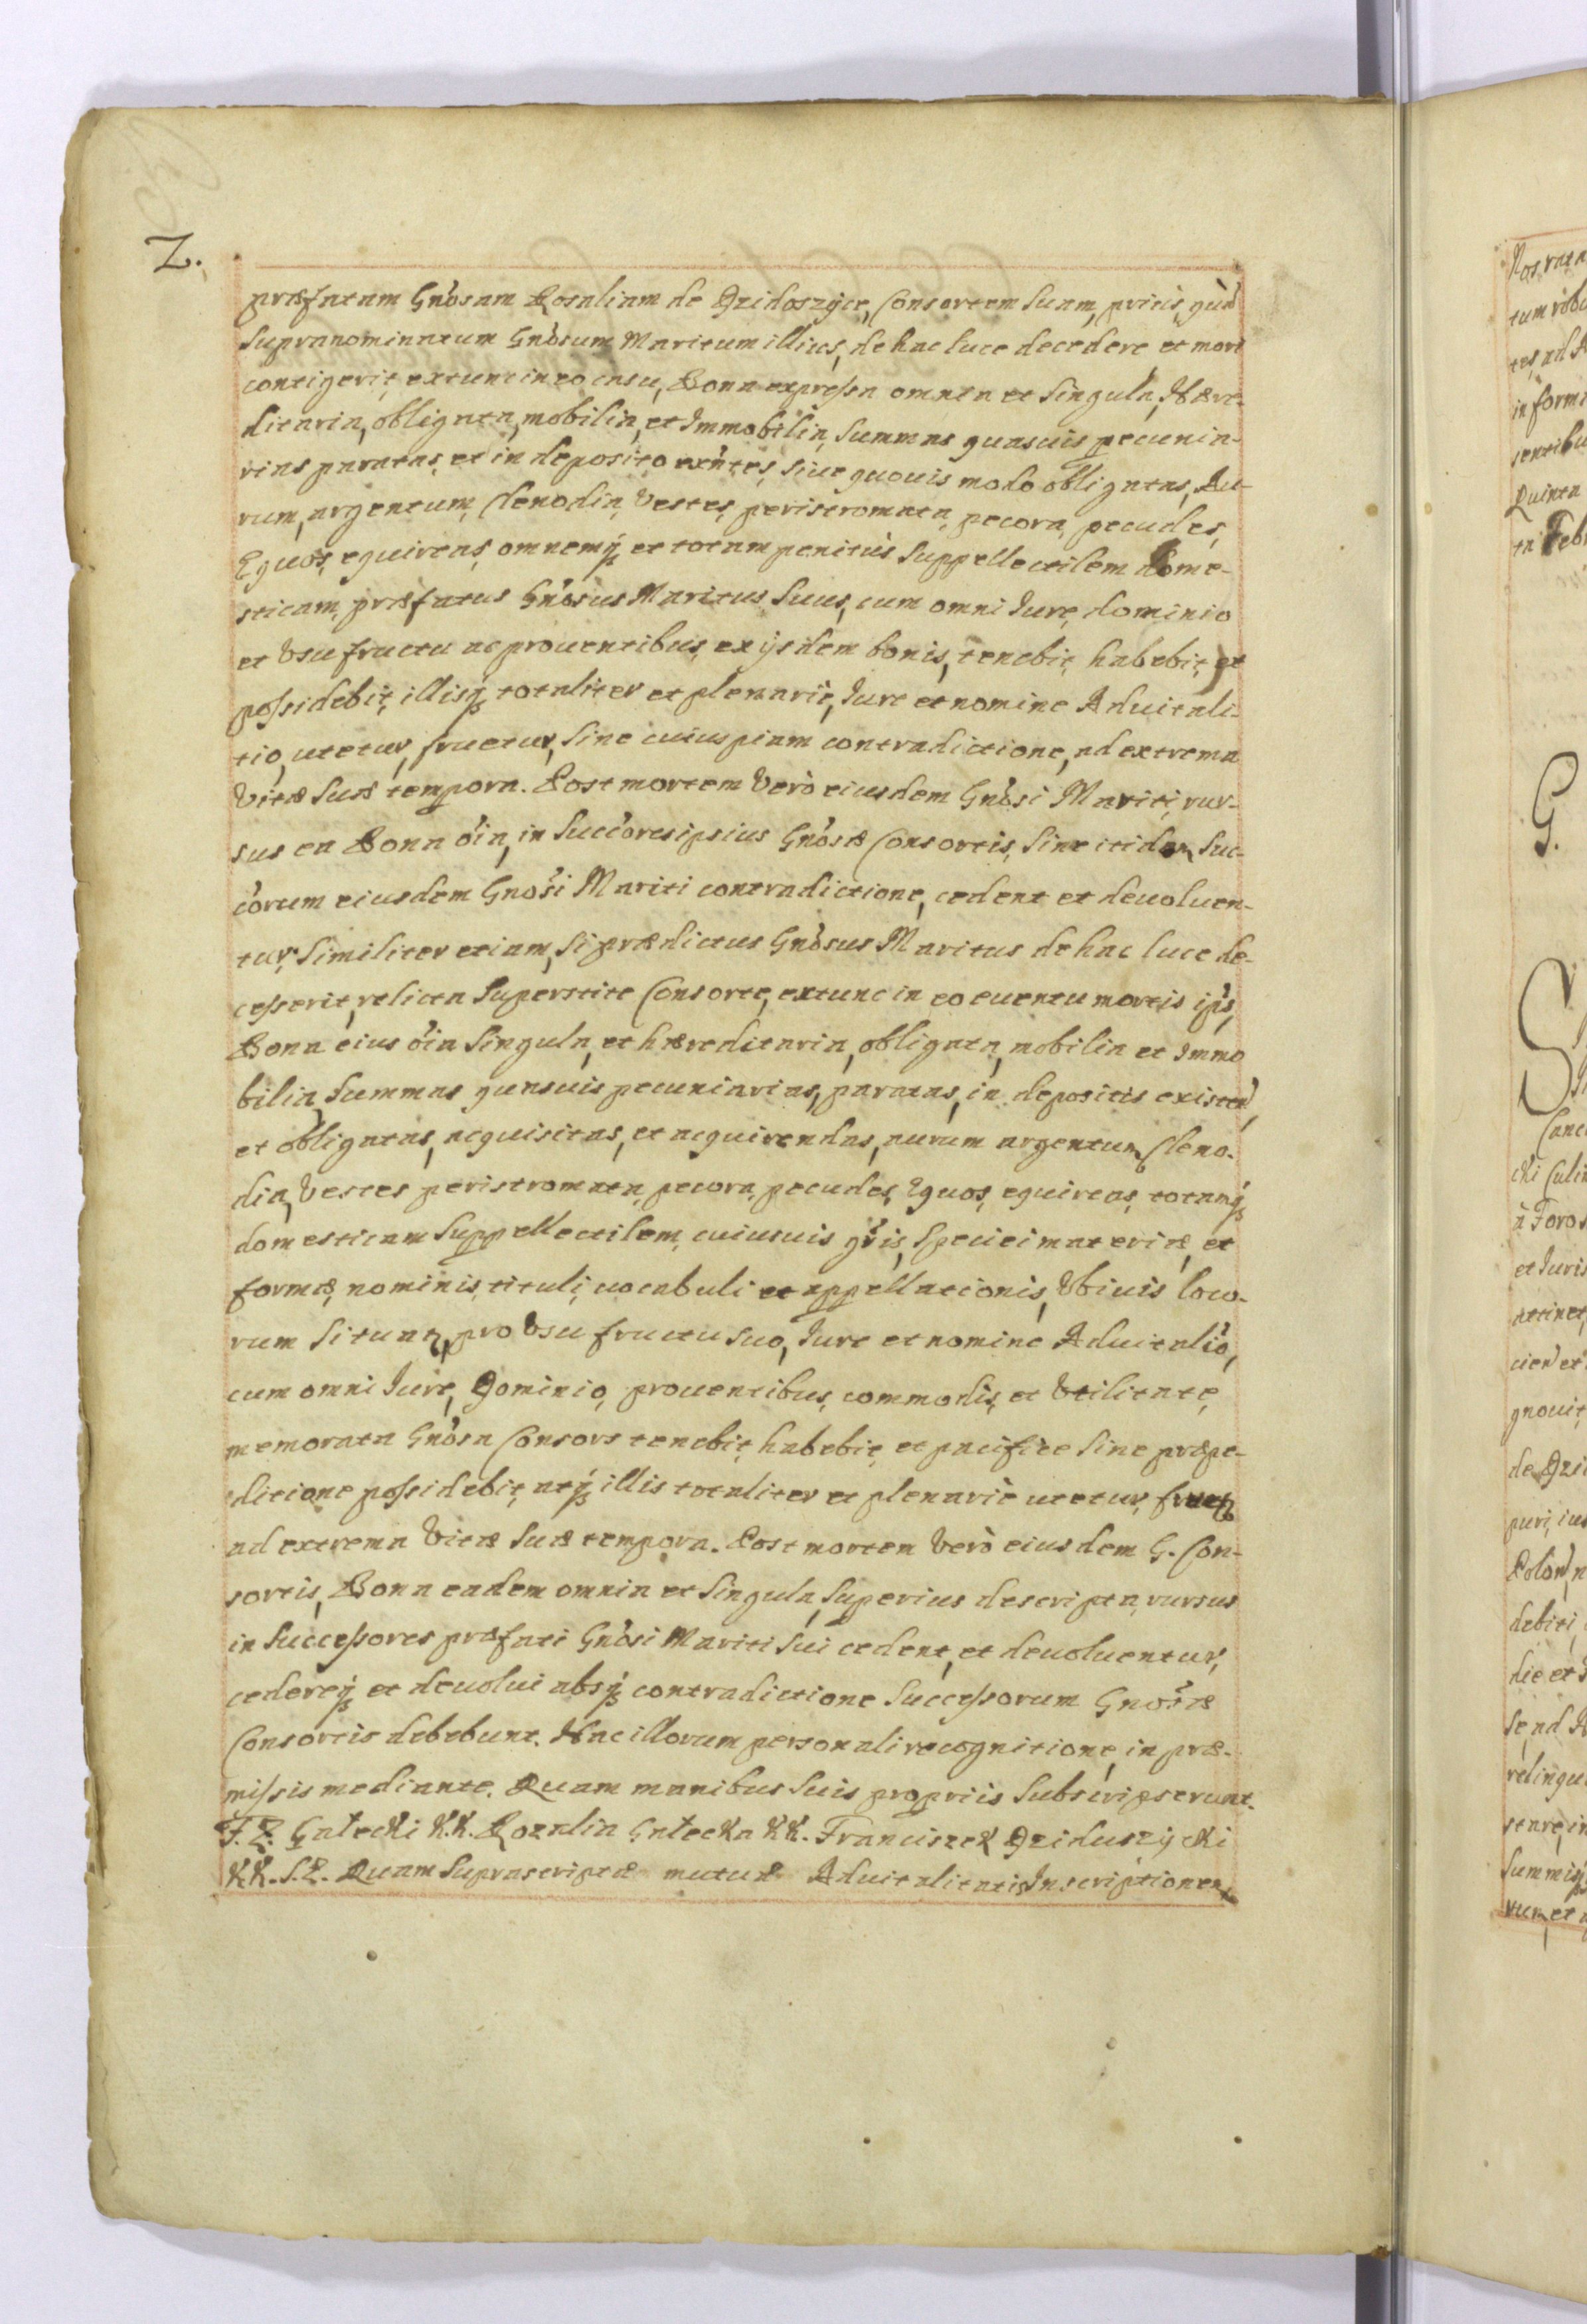 2.
præfatam Gnosam Rosaliam de Dzidoszyce, Consortem suam, prius, quàm
supranominatum Gnosum Maritum illius, de hac luce decedere et mori
contigerit, extunc in eo casu, Bona expressa omnia et singula, Hære-
ditaria, obligata, mobilia, et Immobilia, summas quasuis pecunia-
rias paratas, et in deposito exñtes, siue quouis modo obligatas, Au-
rum, argentum, Clenodia, Vestes, peristromata, pecora, pecudes,
Equos, equireas, omnemq; et totam penitùs suppellectilem dome-
sticam, præfatus Gnosus Maritus suus, cum omni Iure, dominio
et Vsufructu ac prouentibus, ex ijsdem bonis, tenebit, habebit, et
possidebit, illisq; totaliter et plenariè, Iure et nomine Aduitali-
tio, utetur, fruetur, sine cuiuspiam contradictione, ad extrema
Vitæ suæ tempora. Post mortem Verò eiusdem Gnosi Mariti, rur-
sus ea Bona oia, in succores ipsius Gnosæ Consortis, sine itidem suc-
corum eiusdem Gnosi Mariti contradictione, cedent et deuoluen-
tur, Similiter etiam, si prædictus Gnosus Maritus de hac luce de-
cesserit, relicta superstite Consorte, extunc in eo euentu mortis ips,
Bona eius oia singula, et hæreditaria, obligata, mobilia et Immo
bilia, summas quasuis pecuniarias, paratas, in depositis existen,
et obligatas, acquisitas, et acquirendas, aurum argentum, Cleno-
dia, Vestes peristromata, pecora, pecudes, Equos, equireas, totamq;
domesticam suppellectilem, cuiusuis gris, speciei materiæ, et
formæ, nominis, tituli, uocabuli et appellationis, Vbiuis loco-
rum sit, pro Vsufructu suo, Iure et nomine Aduitalio,
cum omni Iure, Dominio, prouentibus, commodis, et Vtilitate,
memorata Gnosa Consors tenebit, habebit, et pacificè sine præpe-
ditione possidebit, atq; illis totaliter et plenariè utetur, fruetr
ad extrema Vitæ suæ tempora. Post mortem Verò eiusdem G. Con-
sortis, Bona eadem omnia et singula, superius descripta, rursus
in successores præfati Gnosi Mariti sui cedent, et deuoluentur,
cedereq; et deuolui absq; contradictione successorum Gnosæ
Consortis debebunt. Hac illorum personali recognitione, in præ-
missis mediante. Quam manibus suis propriis subscripserunt.
F. Z. Gałecki K.K. Rozalia Gałecka KK. Franciszek Dziduszycki
KK. S. Z. Quam suprascriptæ mutuæ Aduitalitatis Inscriptionem